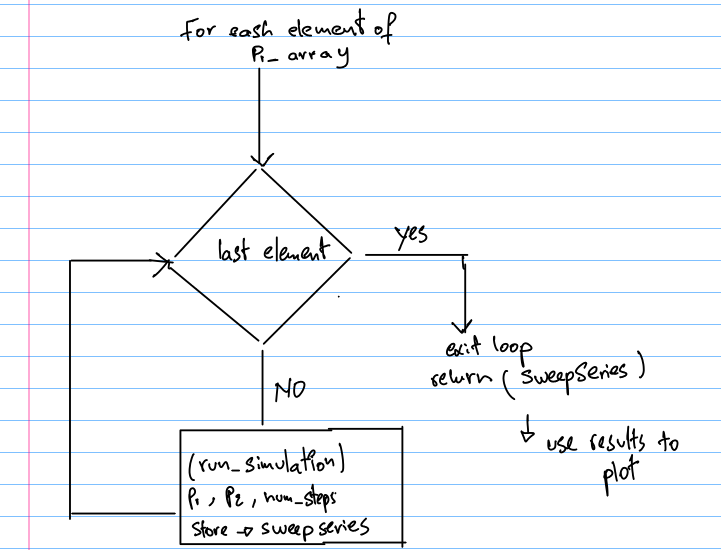 For each element of
P1_array
last element
yes
exit loop
return (SweepSeries)
use results to
plot
NO
(run_simulation)
P1, P2, num_steps
Store → sweepseries